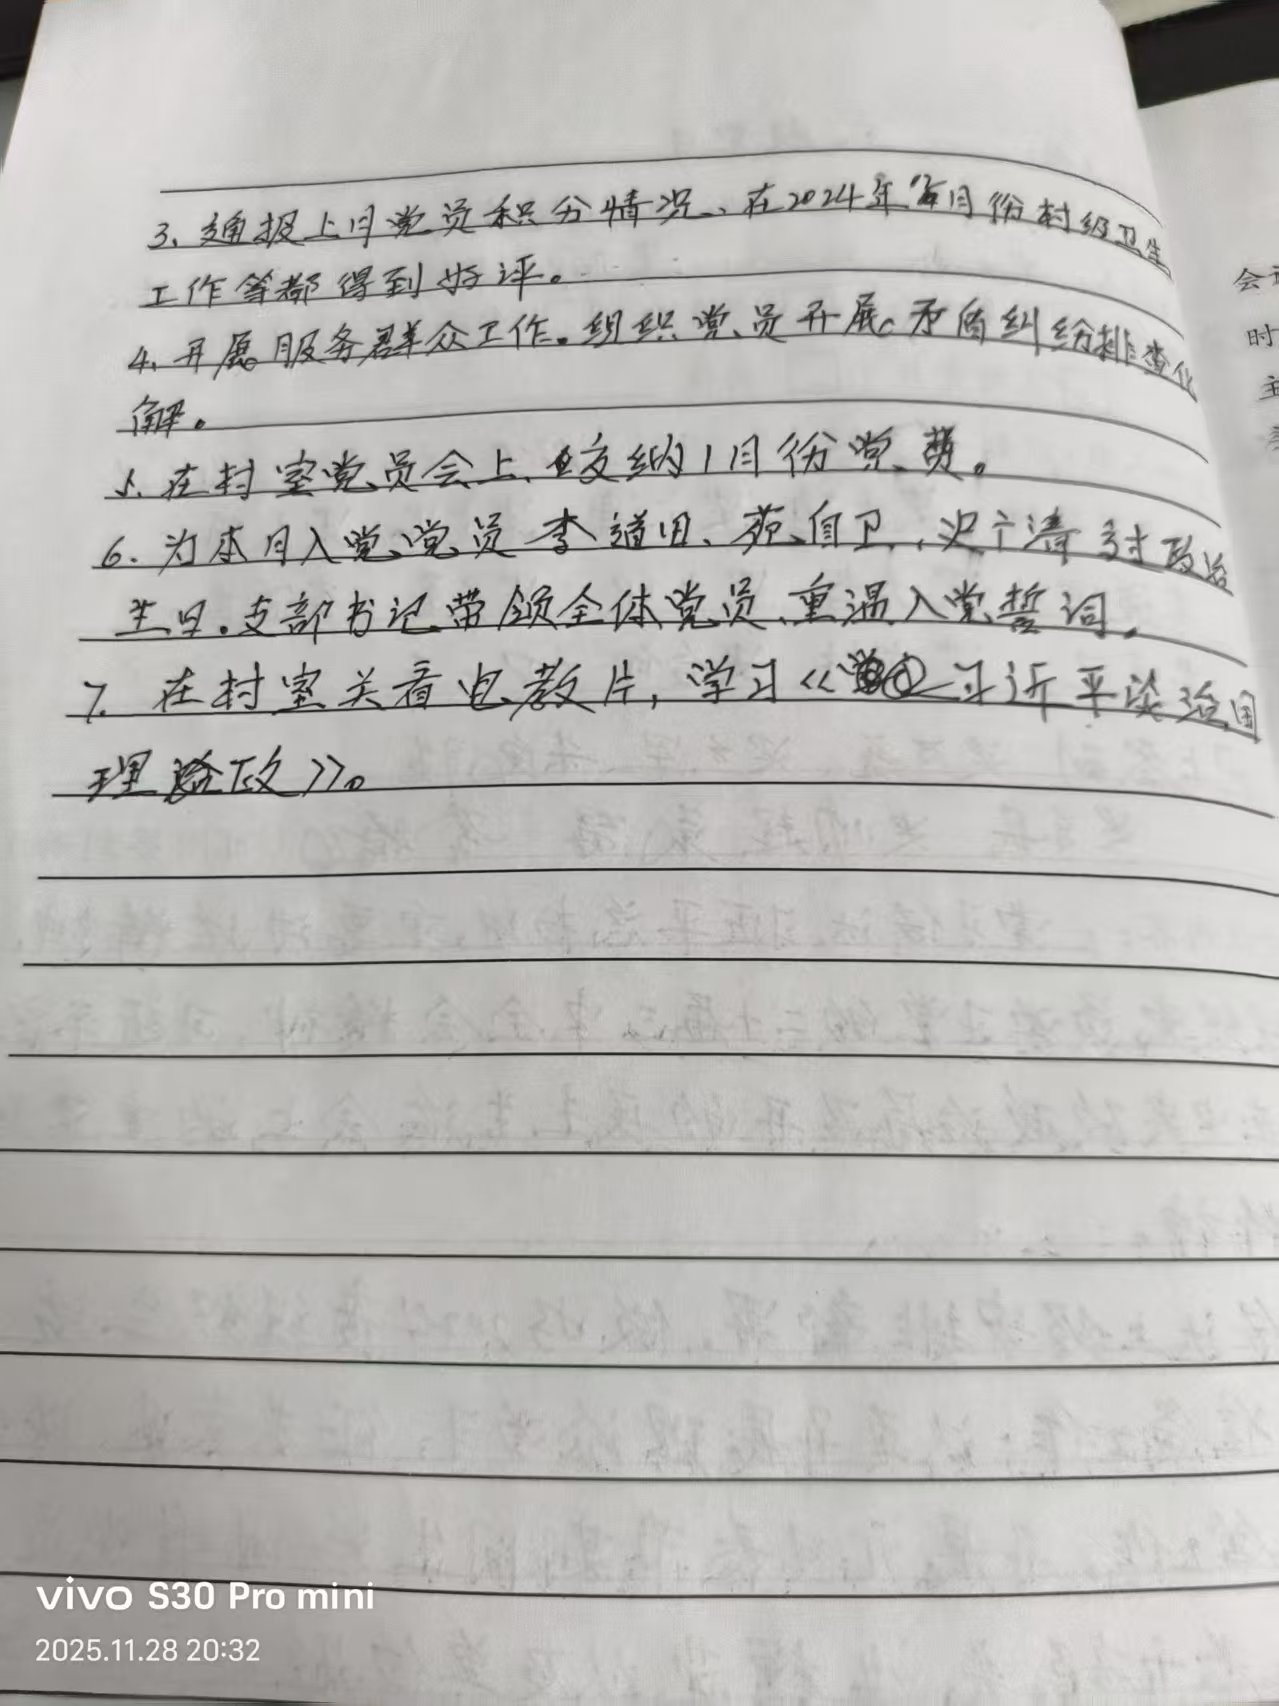 3、通报上月党员积分情况、在2024年每月份村级卫生
工作等都得到好评。
4、开展服务群众工作。组织党员开展矛盾纠纷排查化
解。
5、在村室党员会上、交纳1月份党费。
6、为本月入党党员李道田、苑自卫、过政治
生日。支部书记带领全体党员重温入党誓词。
7、在村室关看电教片，学习《习近平谈治国
理政》。
会
时
主
vivo S30 Pro mini
2025.11.28 20:32